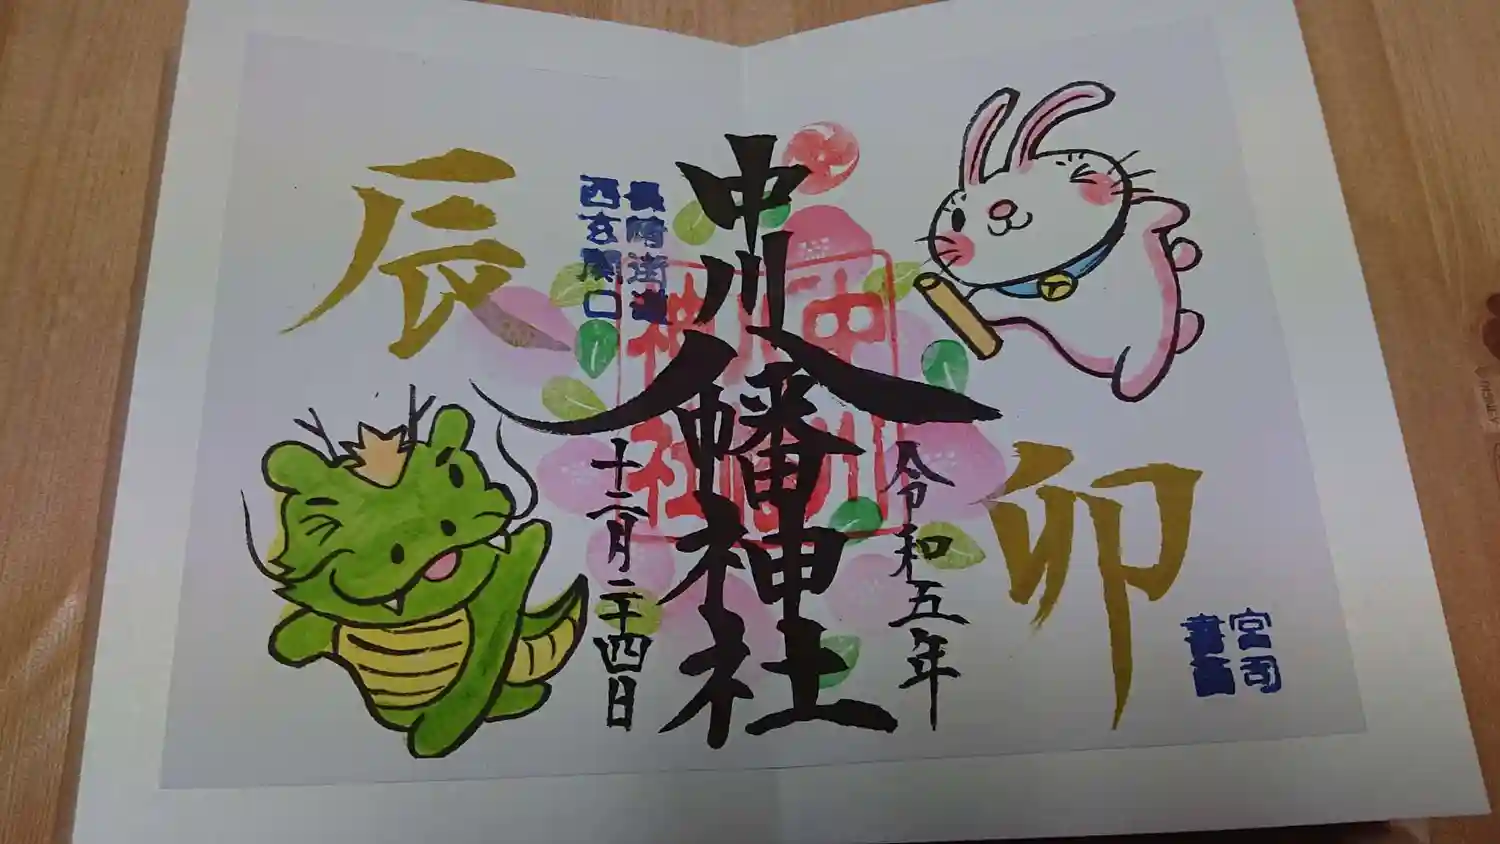 卯
宮司
書画
令和五年
中川八幡神社
中川
神社
長崎街道
西玄関口
十二月二十四日
辰